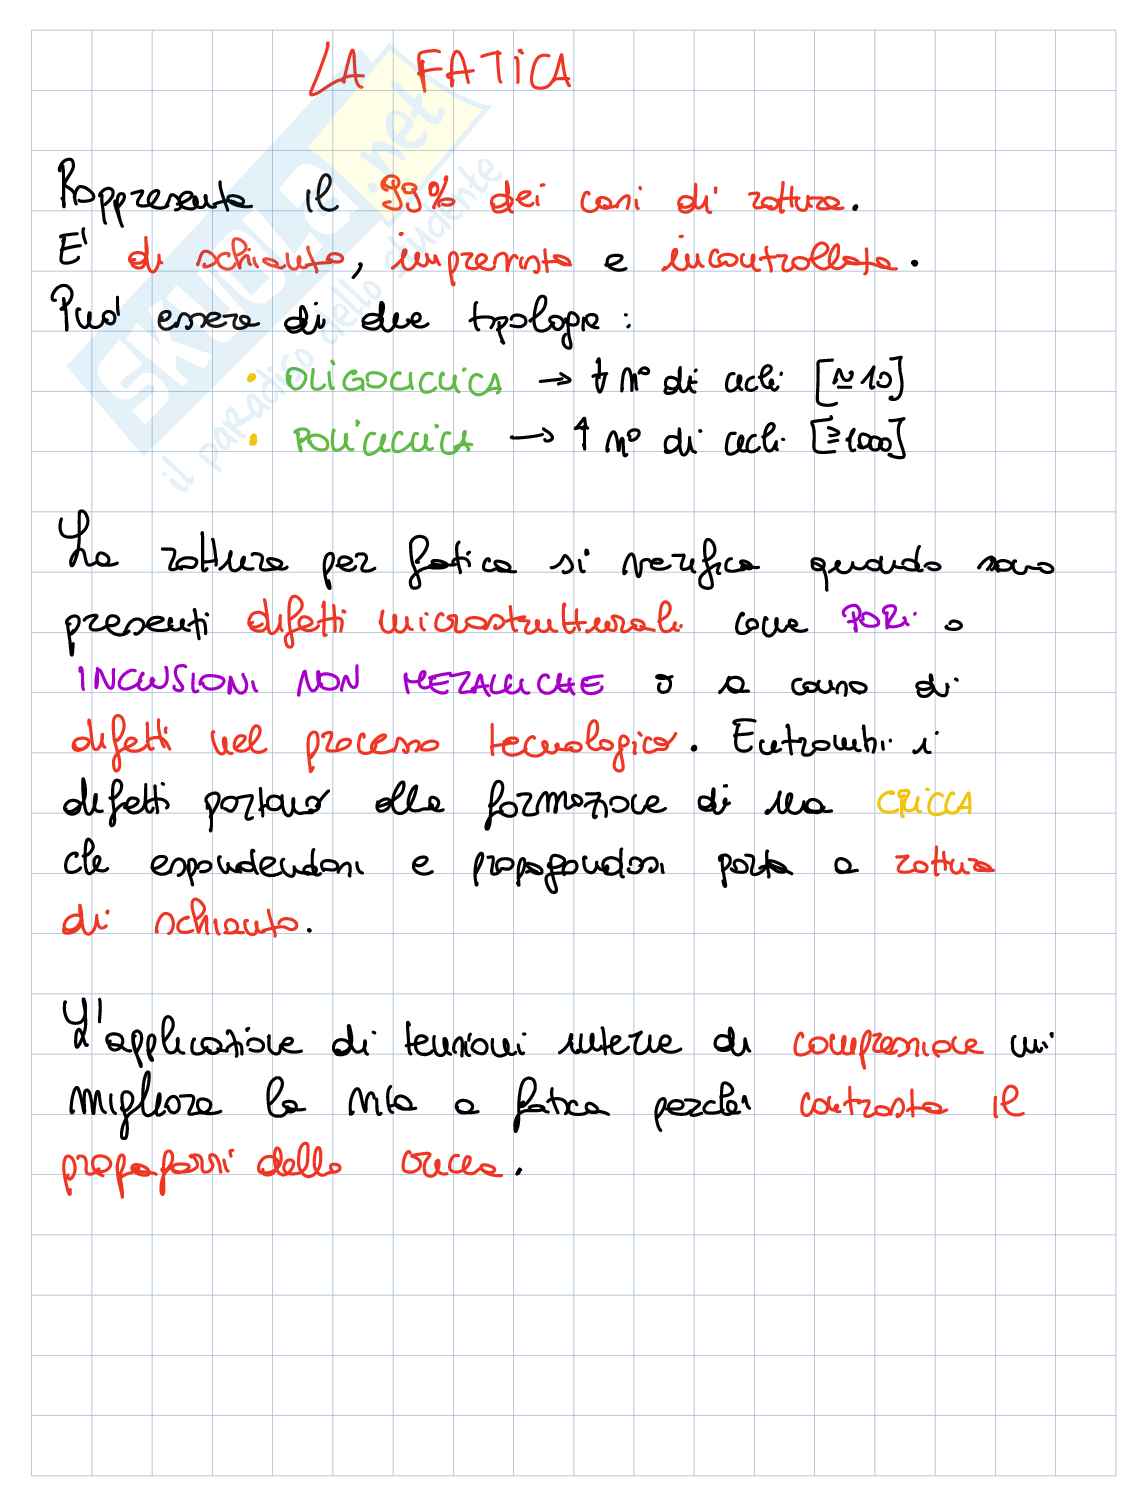 LA FATICA
Rappresenta il 99% dei casi di rottura.
E' di schianto, imprevista e incontrollata.
Puo' essere di due tipologie:
• OLIGOCICLICA → ↓ n° di cicli [≃10]
• POLICICLICA → ↑ n° di cicli [≥1000]
La rottura per fatica si verifica quando sono
presenti difetti microstrutturali come PORI o
INCLUSIONI NON METALLICHE o a causa di
difetti nel processo tecnologico. Entrambi i
difetti portano alla formazione di una CRICCA
che espandendosi e propagandosi porta a rottura
di schianto.
L'applicazione di tensioni interne di compressione mi
migliora la vita a fatica perche' contrasta il
propagarsi della cricca.
SKUOLA.net
il paradiso dello studente